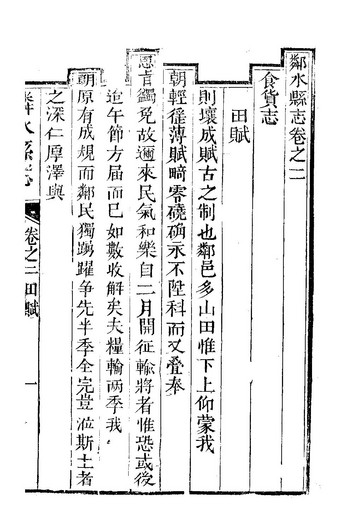 鄰水縣志卷之二
食貨志
田賦
則壤成賦古之制也鄰邑多山田惟下上仰蒙我
朝輕徭薄賦畸零磽确永不陞科而又叠奉
恩旨蠲免故邇來民氣和樂自二月開征輸將者惟恐或後
迨午節方届而已如數收解矣夫糧輸兩季我
朝原有成規而鄰民獨踴躍争先半季全完豈涖斯土者
之深仁厚澤與
鄰水縣志
卷之二田賦
一